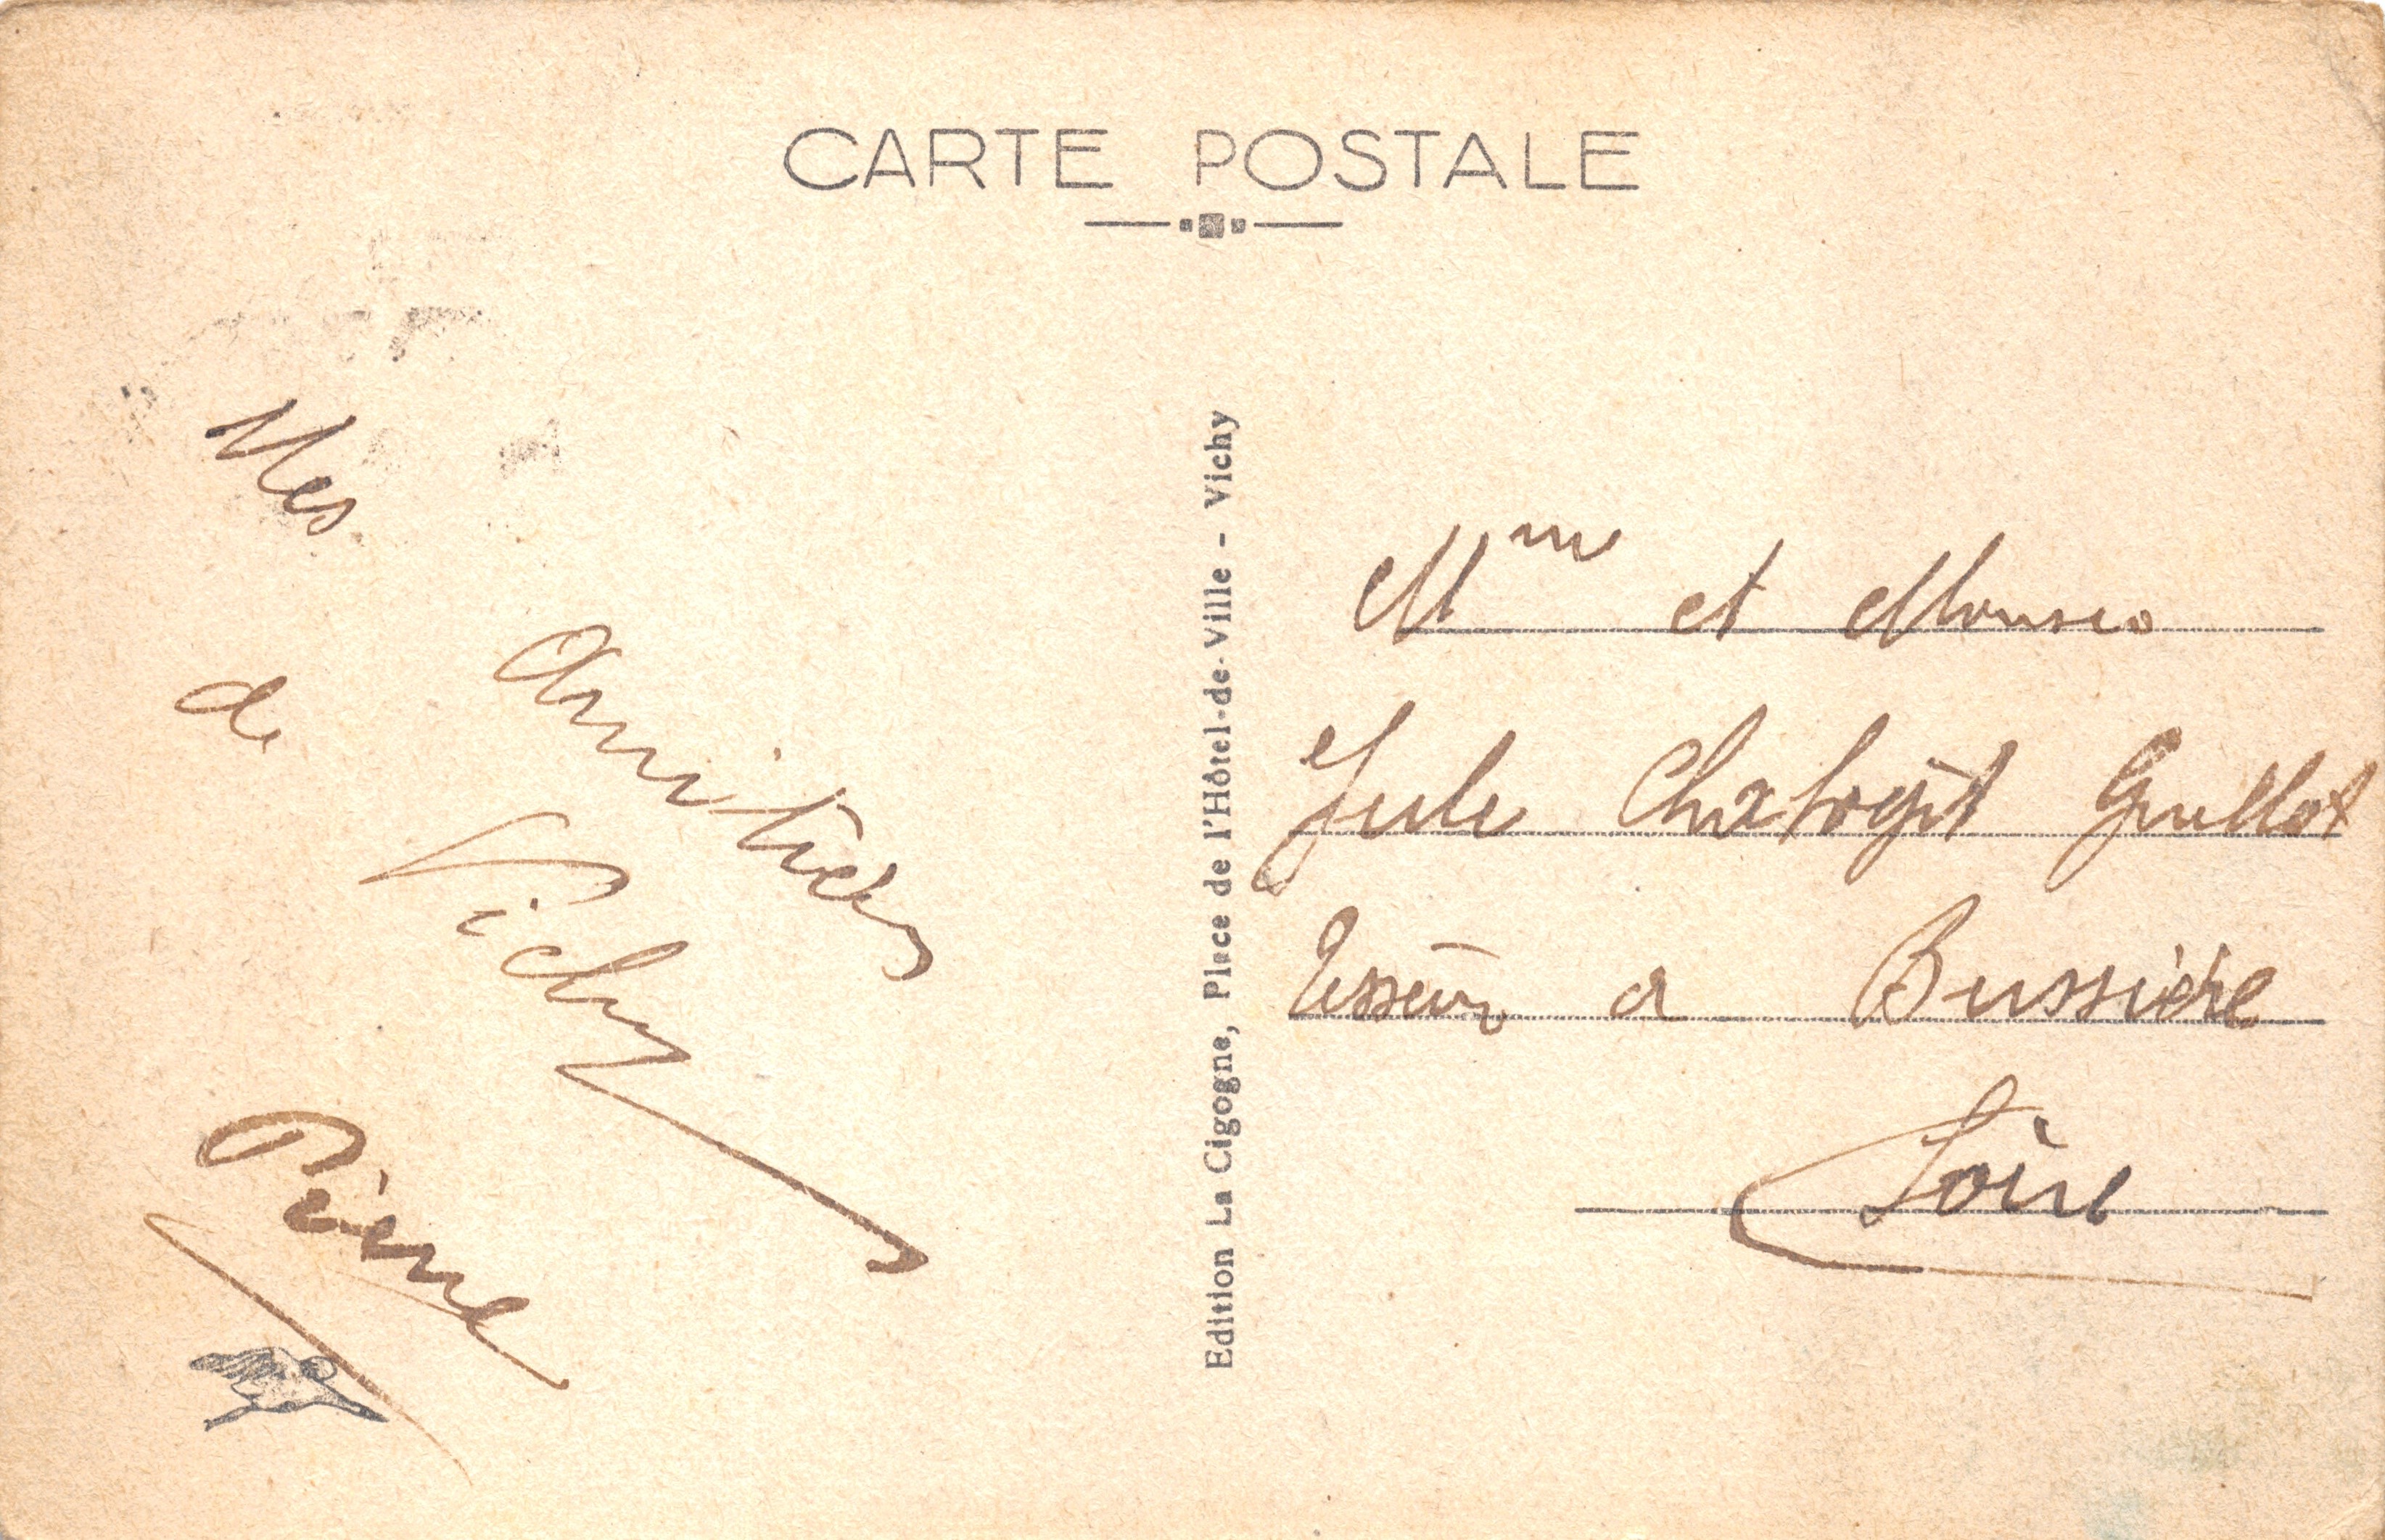 CARTE POSTALE
Mes
amitiées
de
Vichy
Pierre
Edition La Cigogne, Place de l'Hôtel-de-Ville - Vichy
Mme et
Jule Guillot
a Bussière
Loire